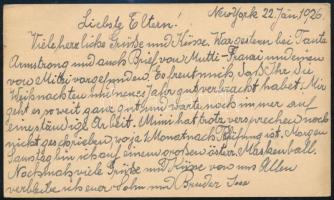 New York 22. Jän 1926
Liebste Eltern.
Viele herzliche Grüße und Küsse. War gestern bei Tante
Armstrong und auch Brief von Mutti und einen
von Mitzi vorgefunden. Es freut mich, daß Ihr die
Weihnachten und neues Jahr gut verbracht habet. Mir
geht es so weit ganz gut und warte noch immer auf
eine ständige Arbeit. Mimi hat trotz versprechen noch
nicht geschrieben, wo ja 1 Monat nach ist. Morgen
Samstag bin ich auf einem großen österr. Maskenball.
Nochmals viele Grüße und Küsse von uns Allen
verbleibe ich euer Sohn und Bruder